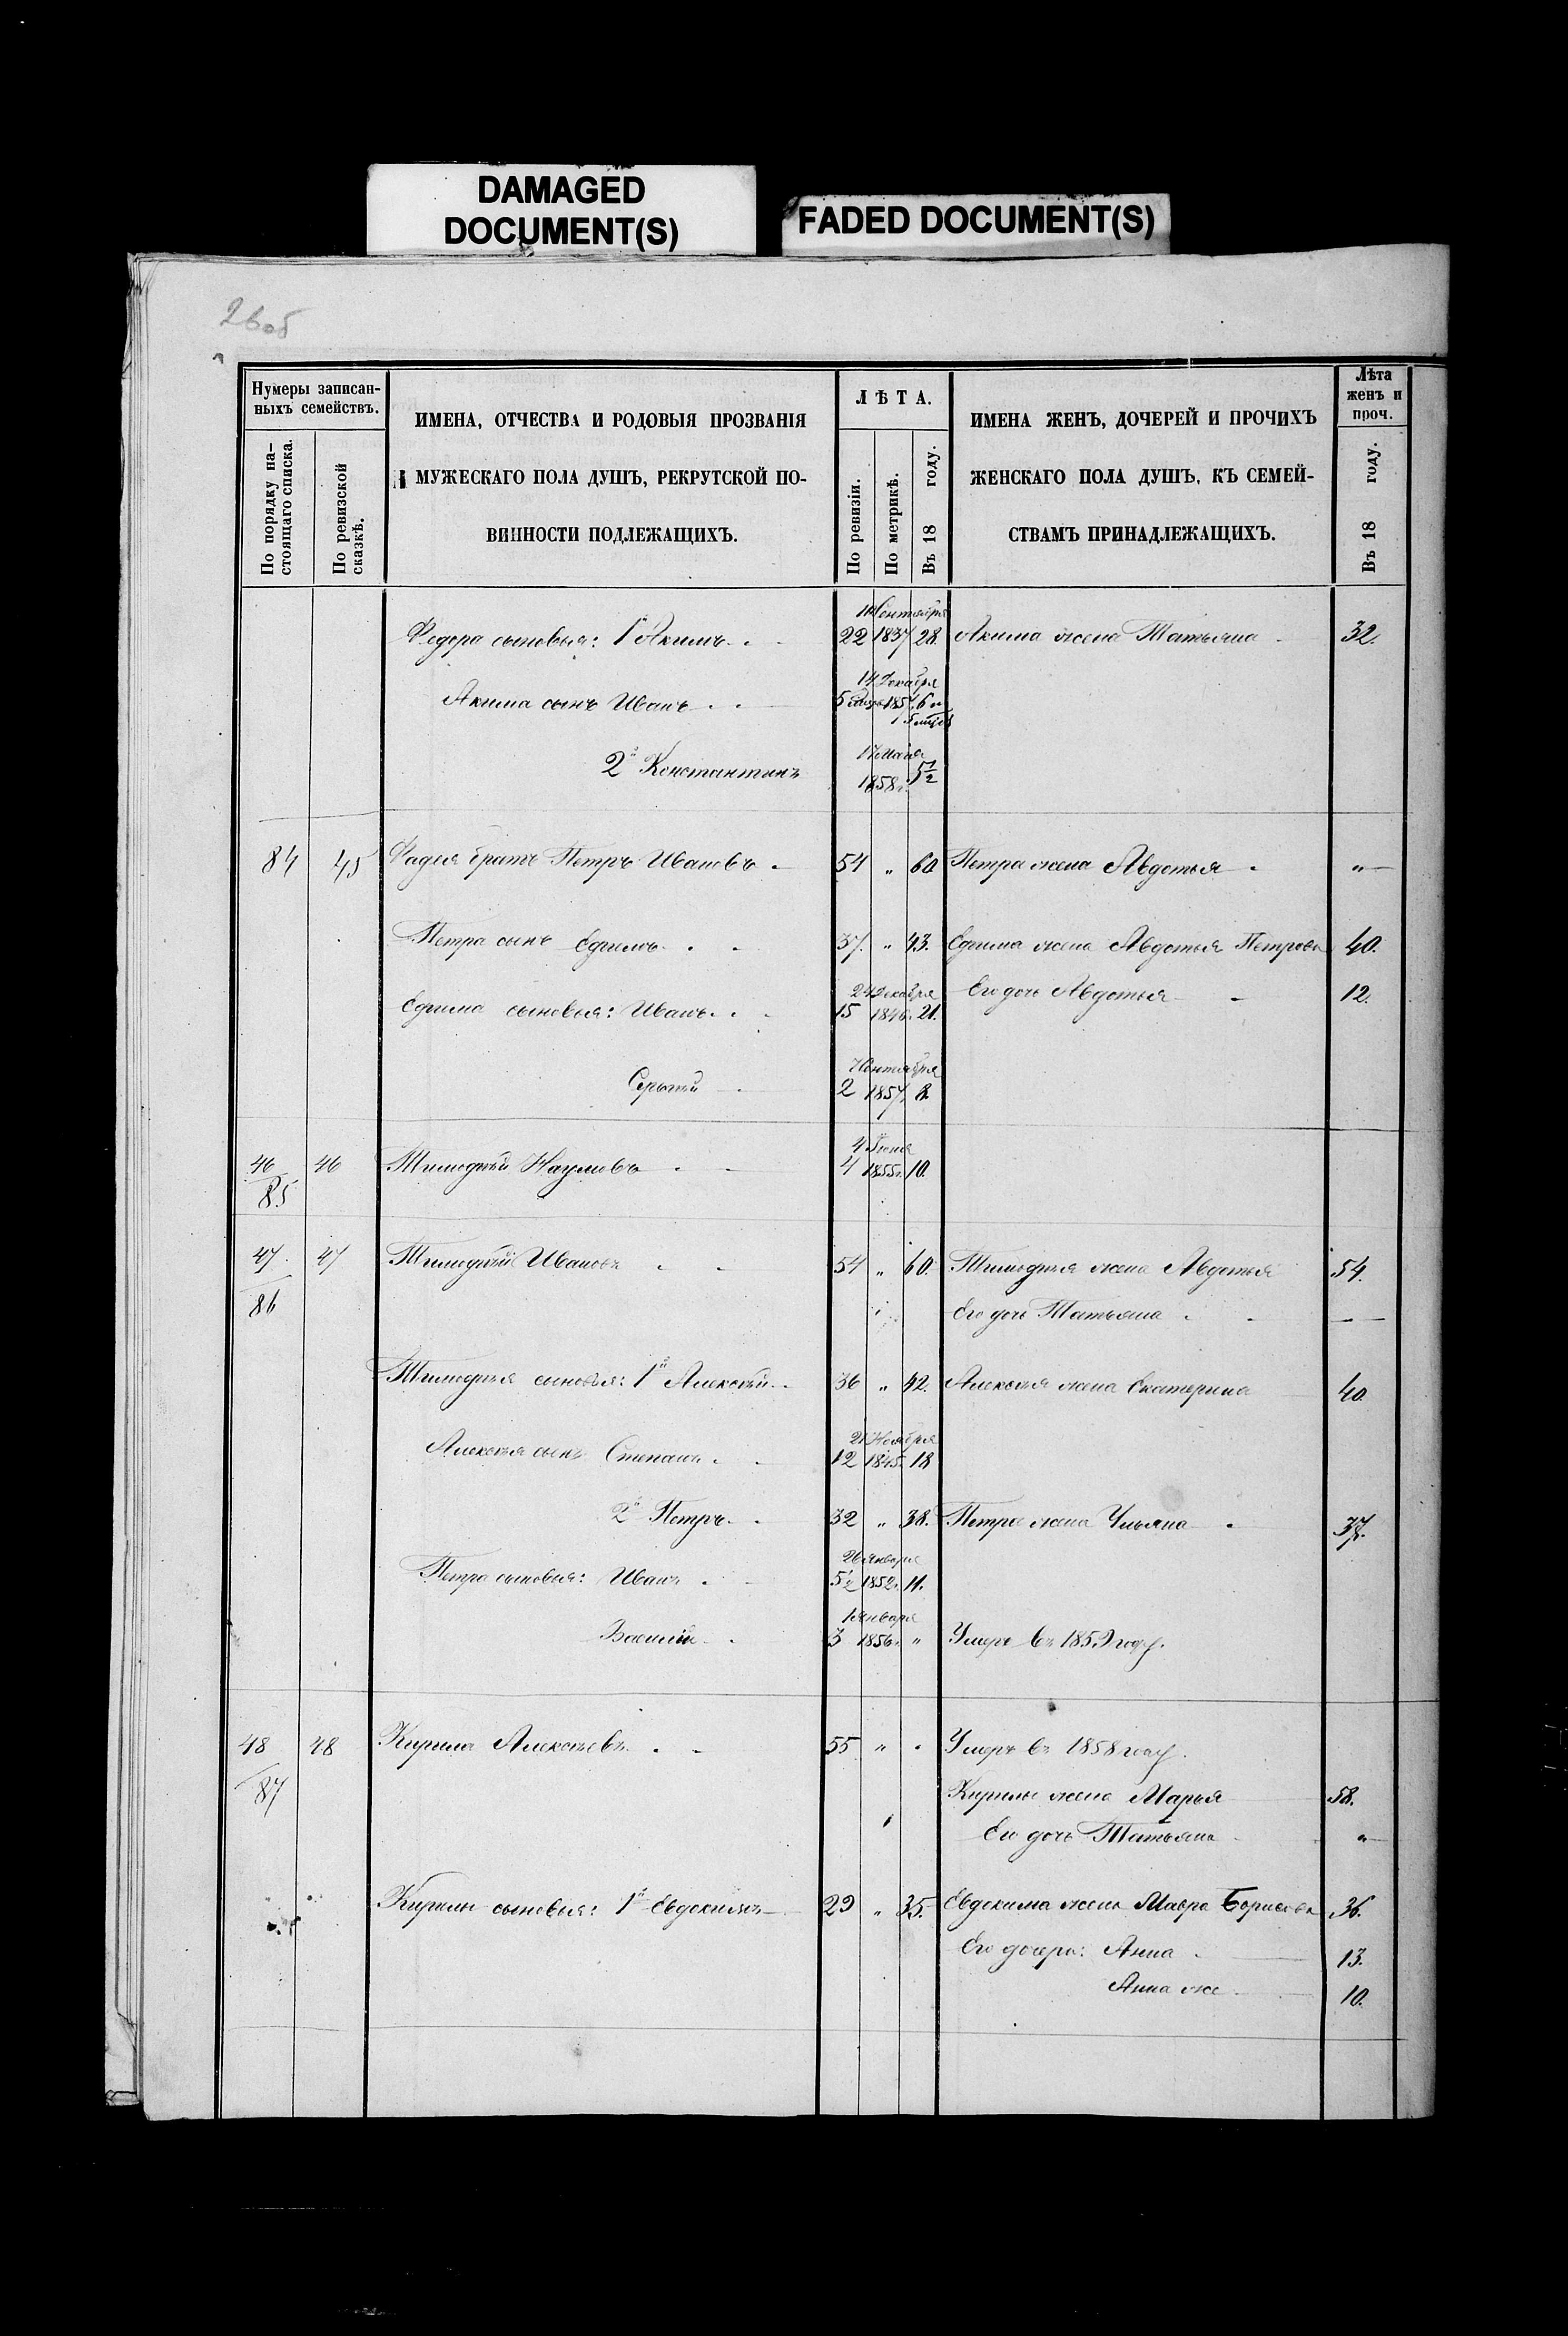 DAMAGED
DOCUMENT(S)
FADED DOCUMENT(S)
Нумеры записан-
ныхъ семействъ.
По порядку на-
стоящаго списка.
По ревизской
сказкѣ.
ИМЕНА, ОТЧЕСТВА И РОДОВЫЯ ПРОЗВАНІЯ
МУЖЕСКАГО ПОЛА ДУШЪ, РЕКРУТСКОЙ ПО-
ВИННОСТИ ПОДЛЕЖАЩИХЪ.
ЛѢТА.
По ревизіи.
По метрикѣ.
Въ 18 году.
ИМЕНА ЖЕНЪ, ДОЧЕРЕЙ И ПРОЧИХЪ
ЖЕНСКАГО ПОЛА ДУШЪ, КЪ СЕМЕЙ-
СТВАМЪ ПРИНАДЛЕЖАЩИХЪ.
Лѣта
женъ и
проч.
Въ 18 году.
Сентября
Федора сыновья: 1й Акимъ 22 1837 28. Акима жена Татьяна 32.
14 Декабря
Акима сынъ Иванъ
17 мая
2й Константинъ 1858 г. 5 1/2
84 45 Фадея братъ Петръ Ивановъ 54 " 60 Петра жена Авдотья "
Петра сынъ Ефимъ 37. " 43. Ефима жена Авдотья Петрова 40.
24 Декабря Его дочь Авдотья 12.
Ефима сыновья: Иванъ 15 1846. 21.
7 Сентября
Сергѣй 2 1857. 8.
4 Іюня
46 46 Тимофѣй Наумовъ 4 1855 г. 10.
85
47. 47 Тимофѣй Ивановъ 54 " 60. Тимофѣя жена Авдотья 54.
86 Его дочь Татьяна —
Тимофѣя сыновья: 1й Алексѣй 36 " 42. Алексѣя жена Екатерина 40.
21 Ноября
Алексѣя сынъ Степанъ 12 1845. 18
2й Петръ 32 " 38. Петра жена Ульяна 37.
26 Января
Петра сыновья: Иванъ 5 1/2 1852 г. 11.
1 Января
Василій 3 1856 г. " Умеръ въ 1859 году.
48 48 Кирила Алексѣевъ 55 " " Умеръ въ 1858 году.
87 Кирилы жена Марья 58.
Его дочь Татьяна "
Кирилы сыновья: 1й Евдокимъ 29 " 35. Евдокима жена Мавра Борисова 36.
Его дочери: Анна 13.
Анна же 10.